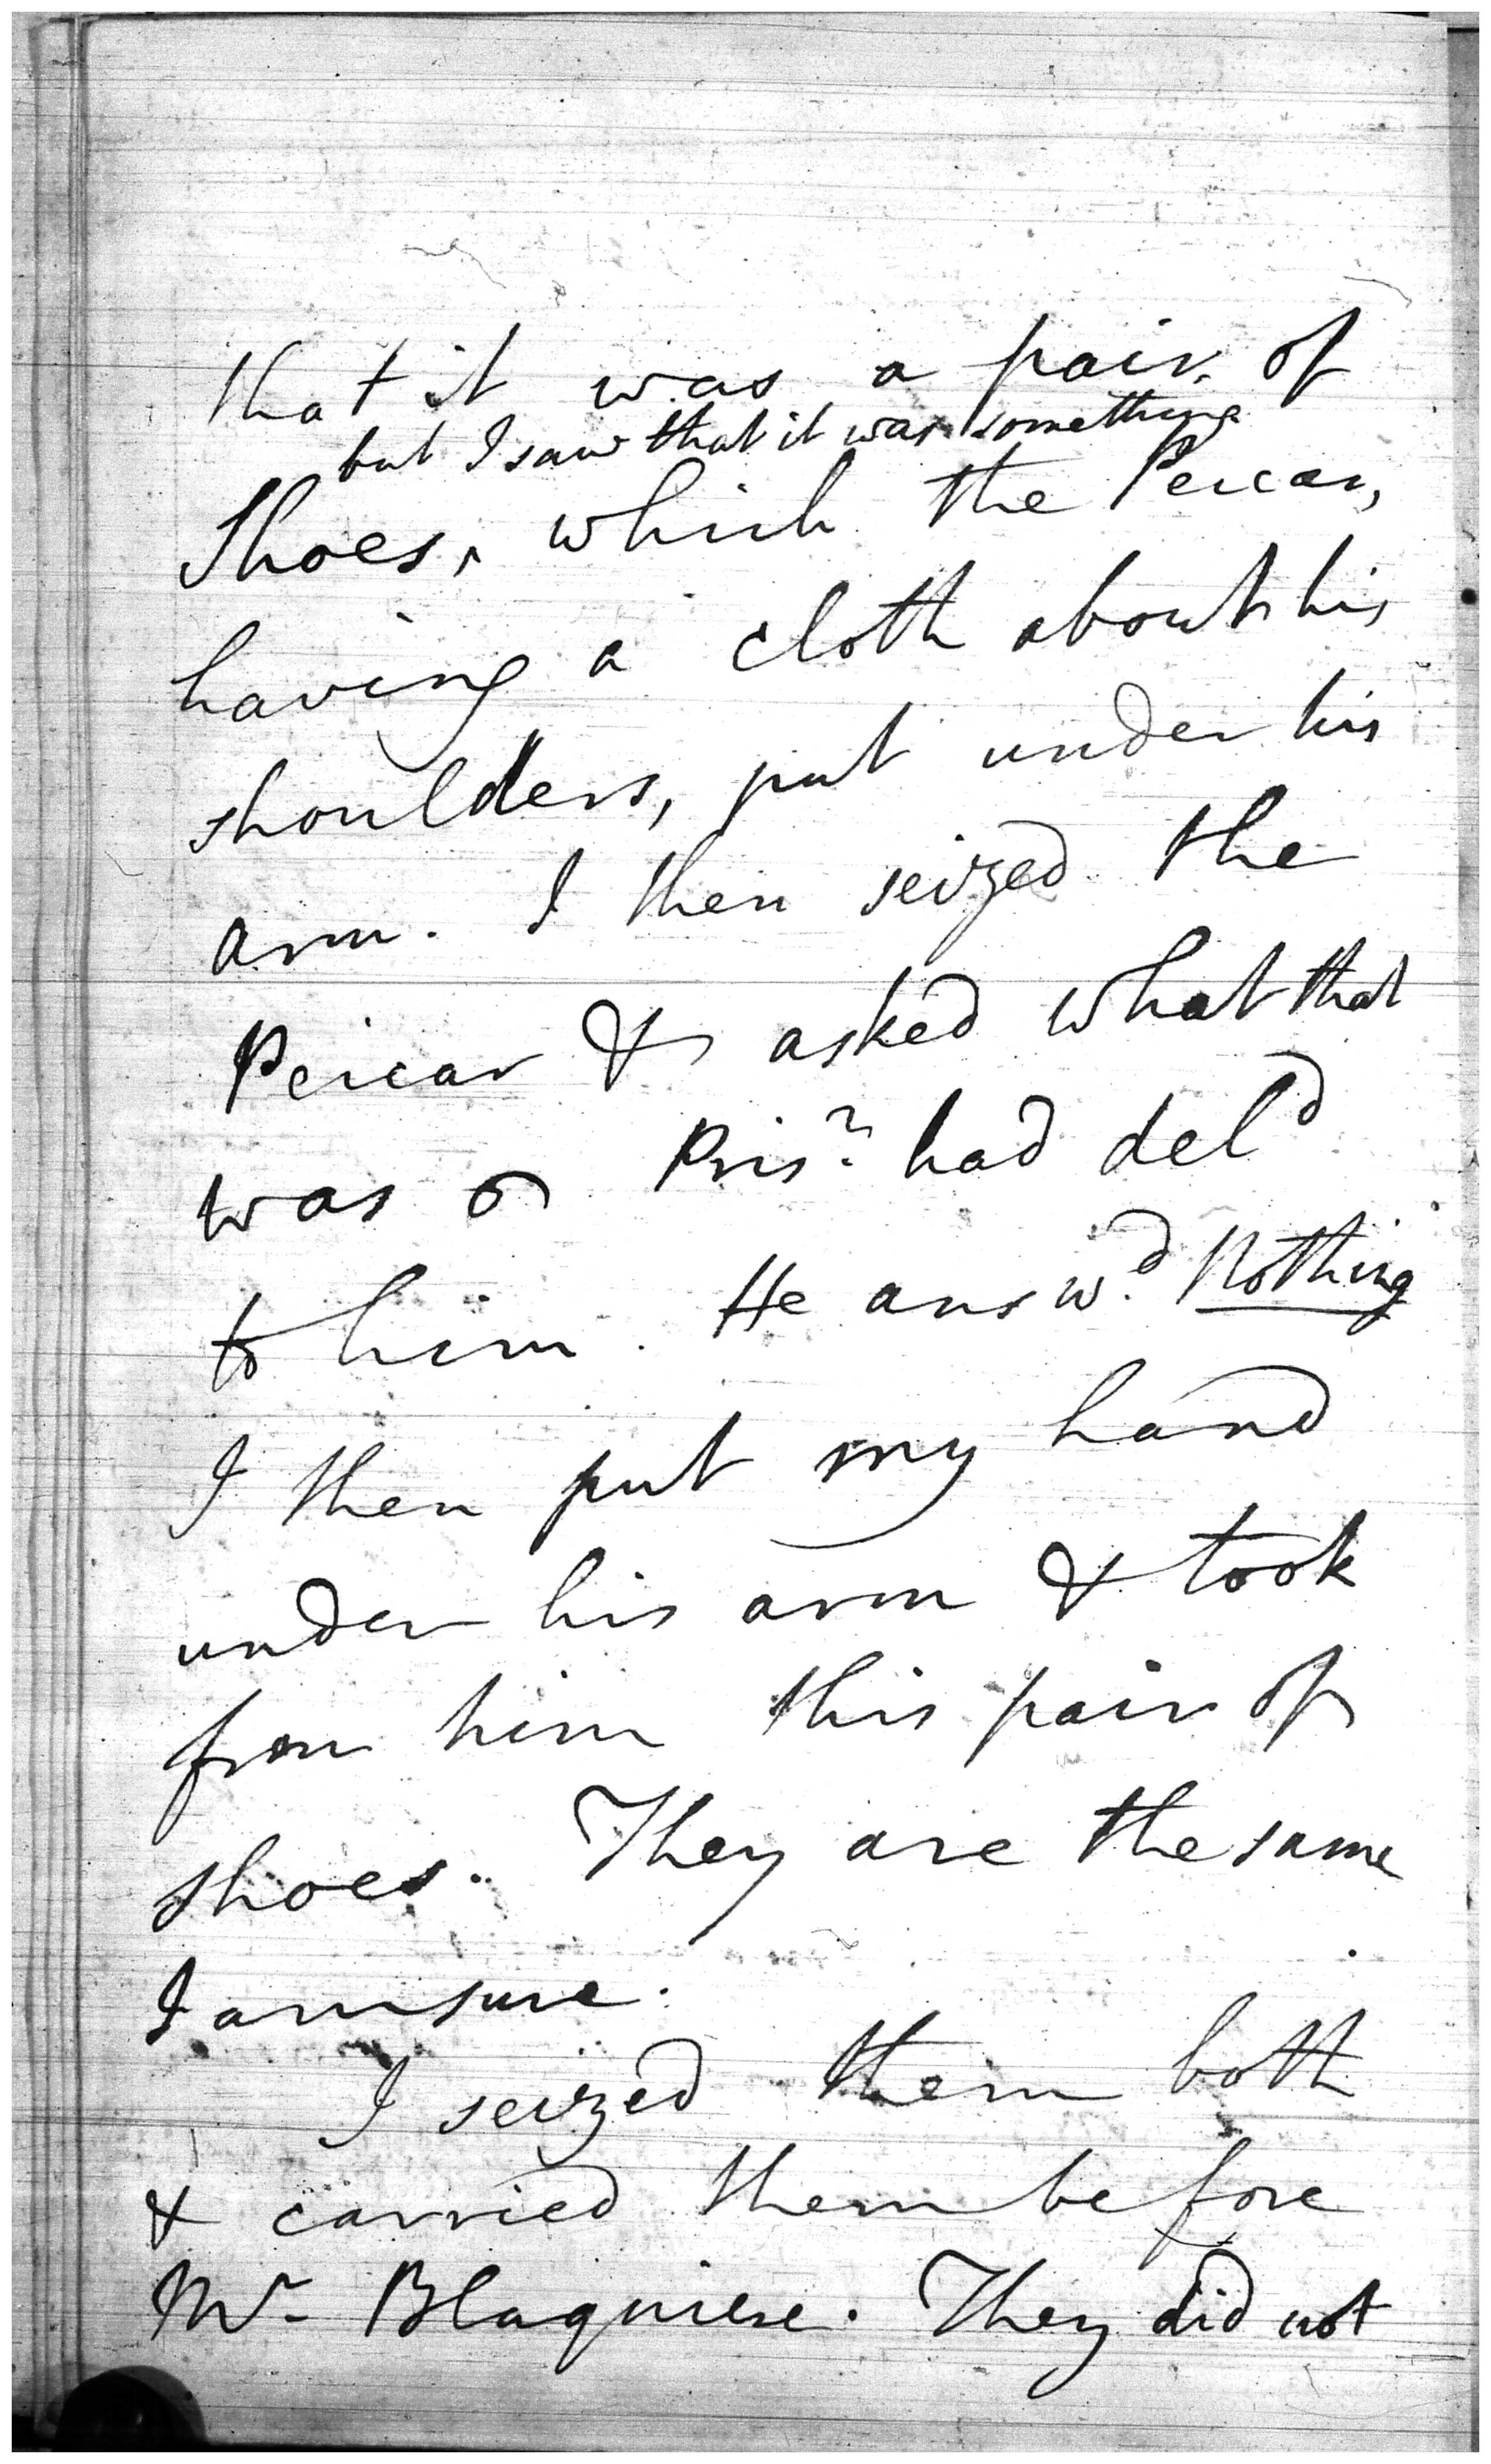 that it was a pair of
but I saw that it was something
Shoes,^ which the Peicar,
having a cloth about his
shoulders, put under his
arm. I then seized the
Peicar & asked what that
was Pris.r had del.d
to him. He answ.d Nothing
I then put my hand
under his arm & took
from him this pair of
shoes. They are the same
I am sure.
I seized them both
& carried them before
Mr Blaquiere. They did not